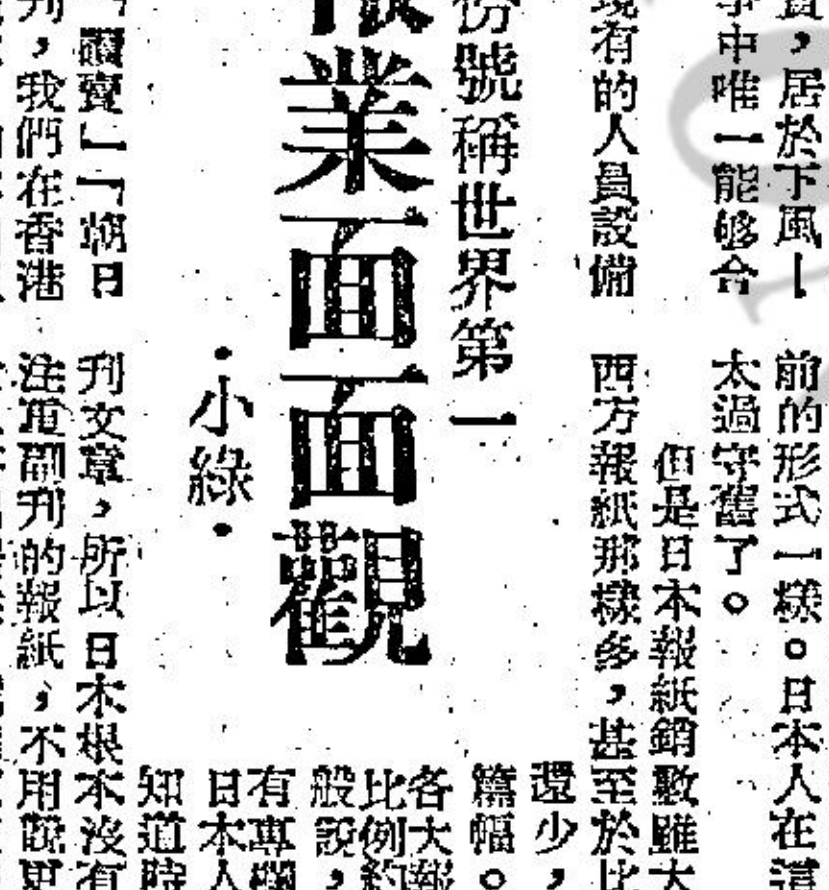 實，居於下風——
事中唯一能够合
現有的人員設備
份號稱世界第一
報業面面觀
·小綠·
「讀賣」「朝日
刋，我們在香港
前的形式一樣。日本人在這
太過守舊了。
但是日本報紙銷數雖大
西方報紙那樣多，甚至於比
還少，
篇幅。
各大報
比例約
般說，
有專欄
日本人
知道時
刋文章，所以日本根本沒有
注重副刋的報紙，不用說更